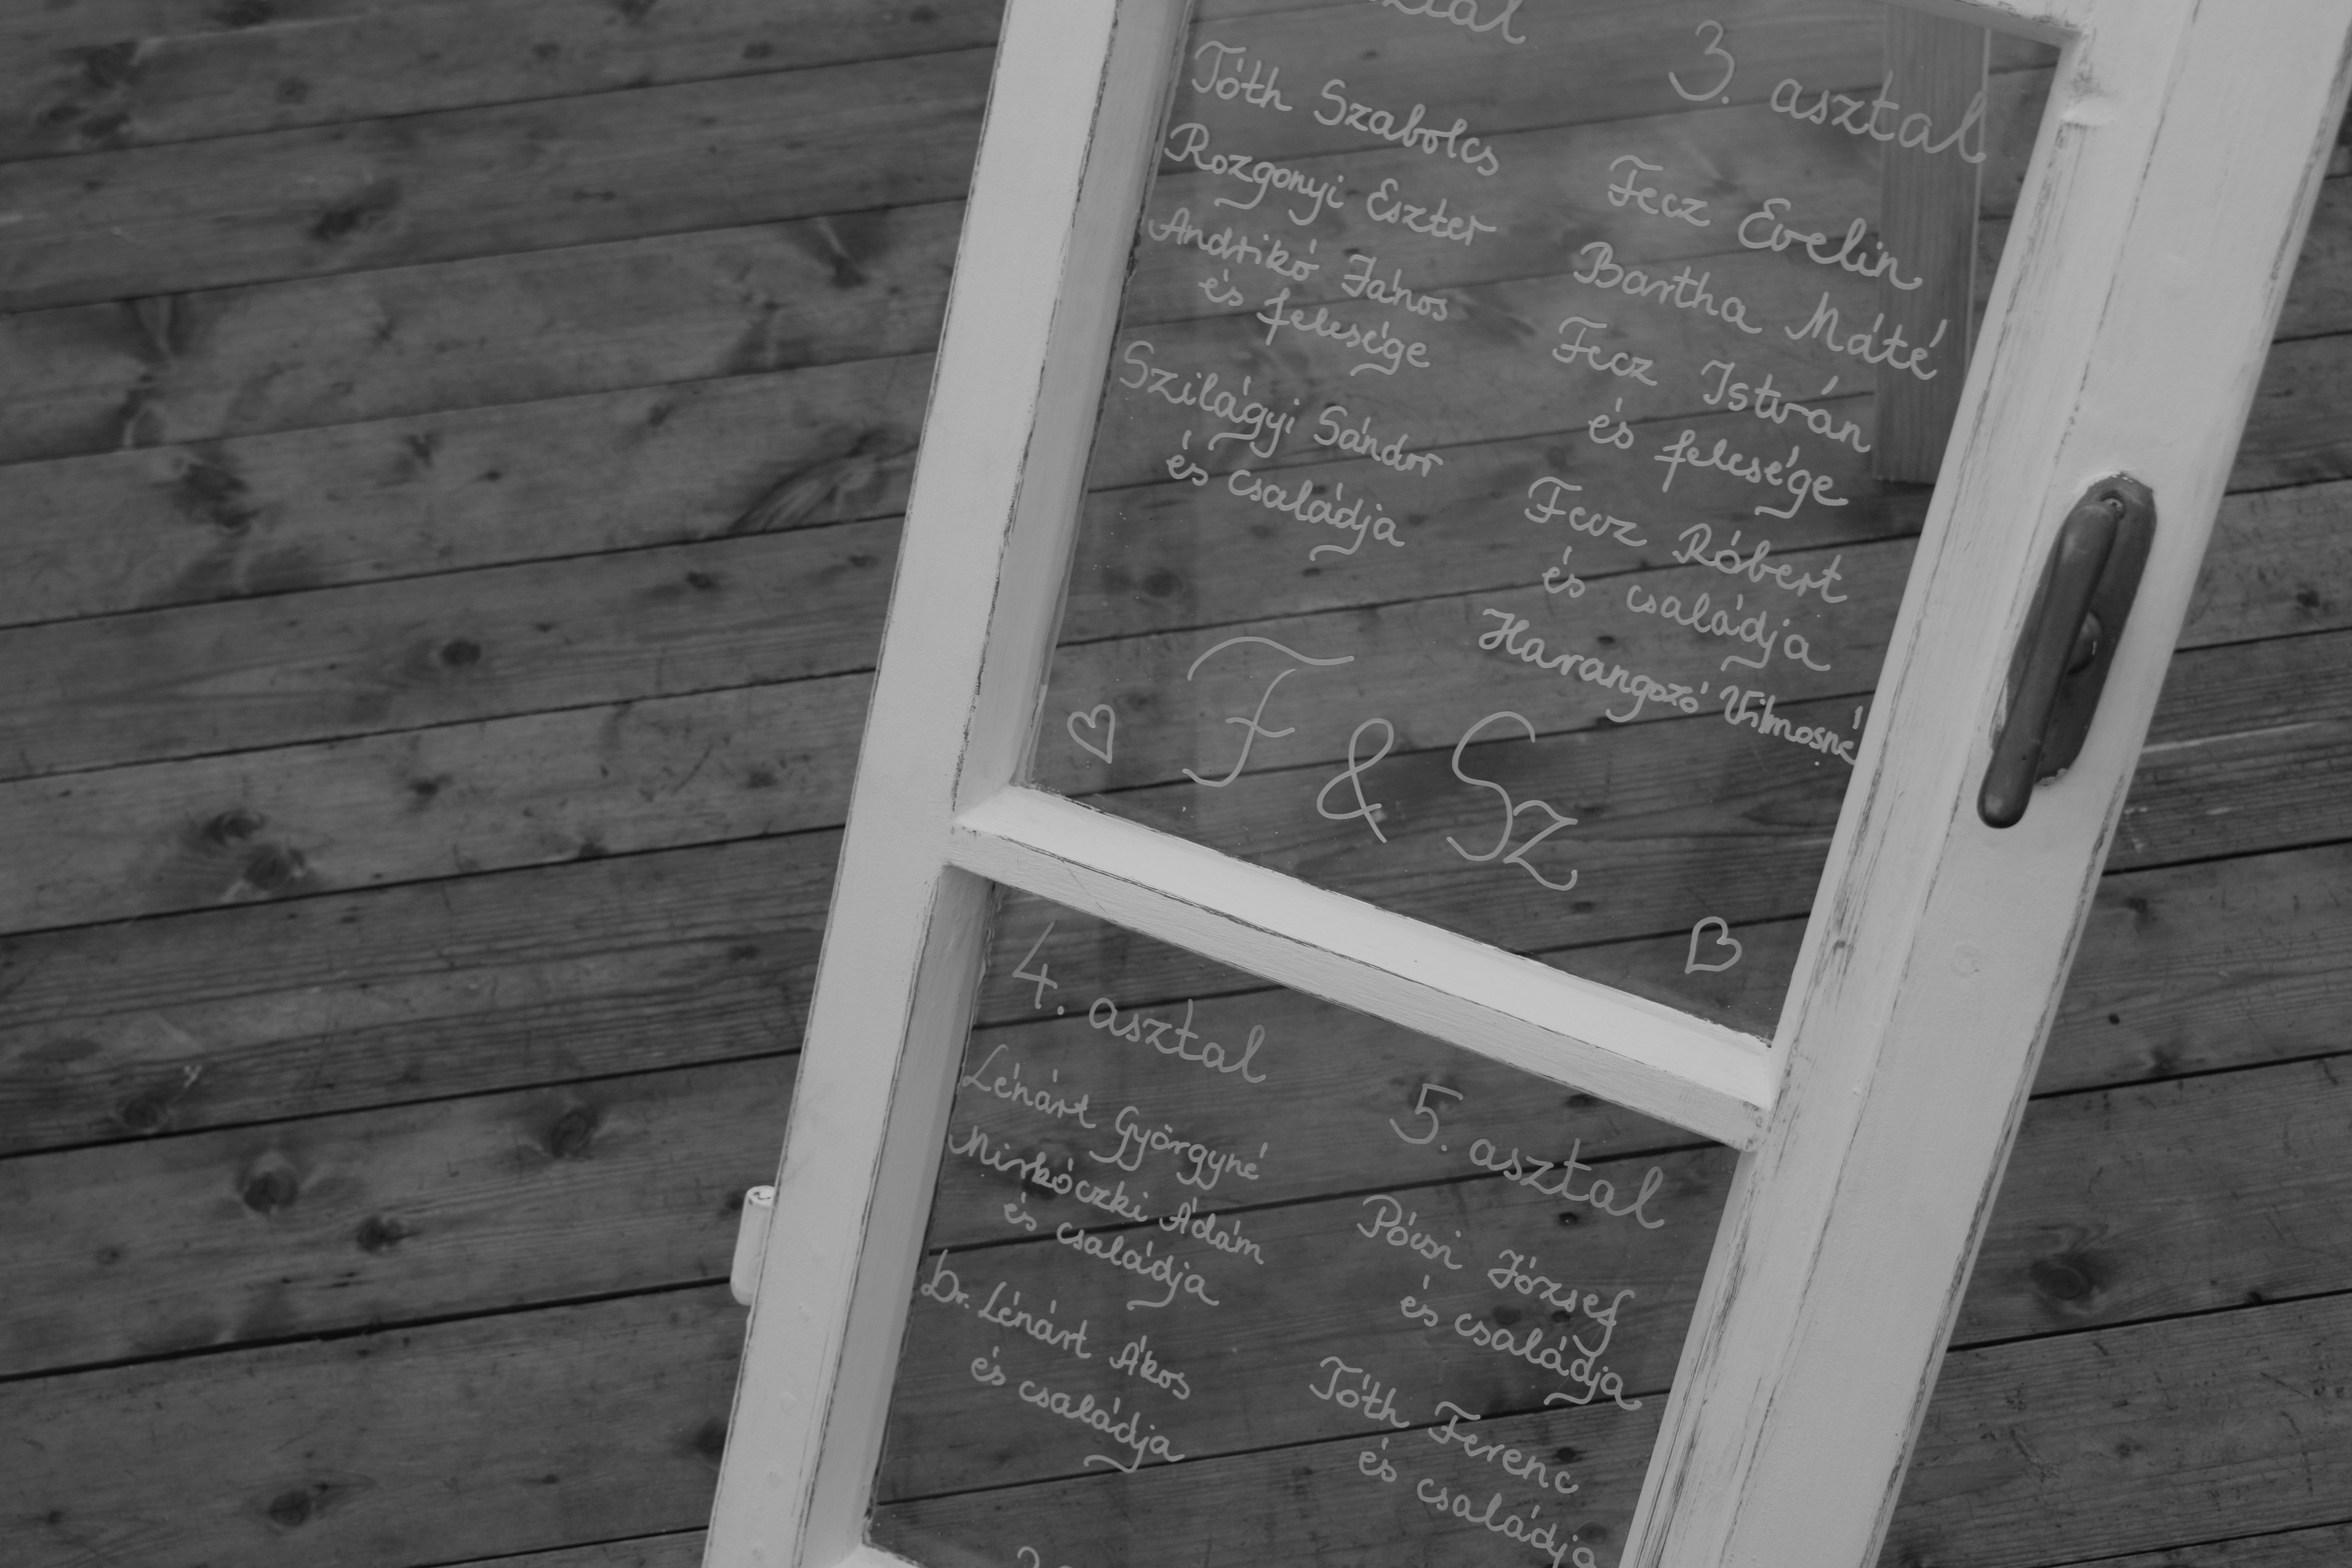 Tóth Szabolcs
Rozgonyi Eszter
Andrikó János
és felesége
Szilágyi Sándor
és családja
3. asztal
Fecz Evelin
Bartha Máté
Fecz István
és felesége
Fecz Róbert
és családja
Harangozó Vilmosné
F & Sz
4. asztal
Lénárt Györgyné
Mirkóczki Ádám
és családja
Dr. Lénárt Ákos
és családja
5. asztal
Pócsi József
és családja
Tóth Ferenc
és családja